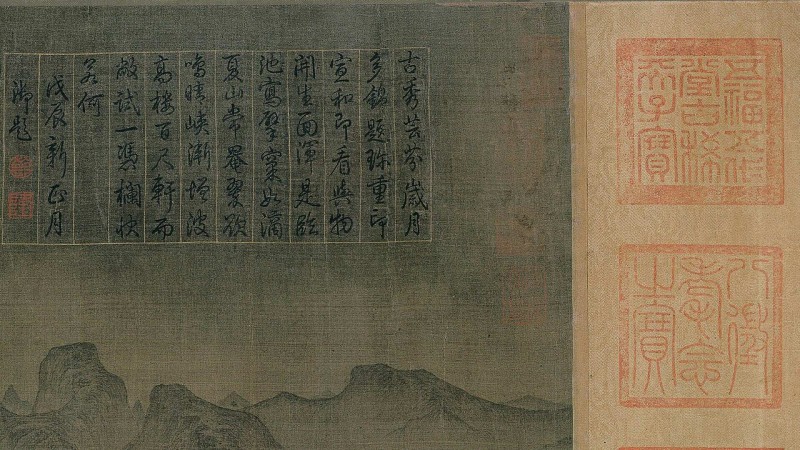 古秀芸芬歲月
多錦題珠重印
宣和即看與物
開生面渾是臨
池寫擘窠如滴
夏山常靄翠欲
鳴晴峽漸增波
高樓百尺軒而
敞試一憑欄快
若何
戊辰新正月
御題
五福五代
堂古稀
天子寶
八徵
耄念
之寶